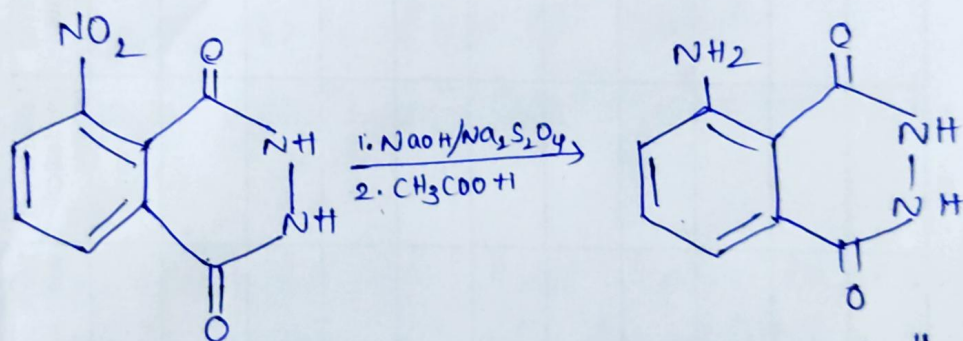 NO2
O
NH
NH
O
1. NaOH/Na2S2O4
2. CH3COOH
NH2
O
NH
NH
O